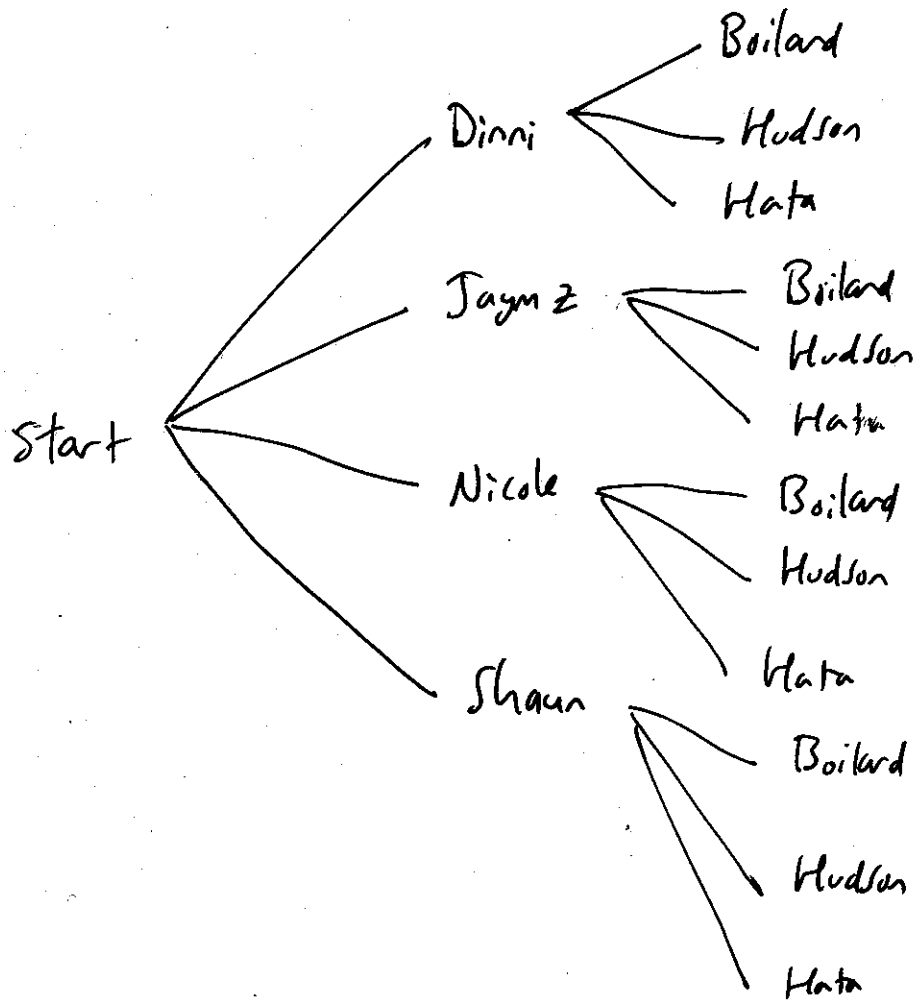 Boilard
Dinni
Hudson
Hata
Jaymz
Boilard
Hudson
Hata
Start
Nicole
Boilard
Hudson
Hata
Shaun
Boilard
Hudson
Hata